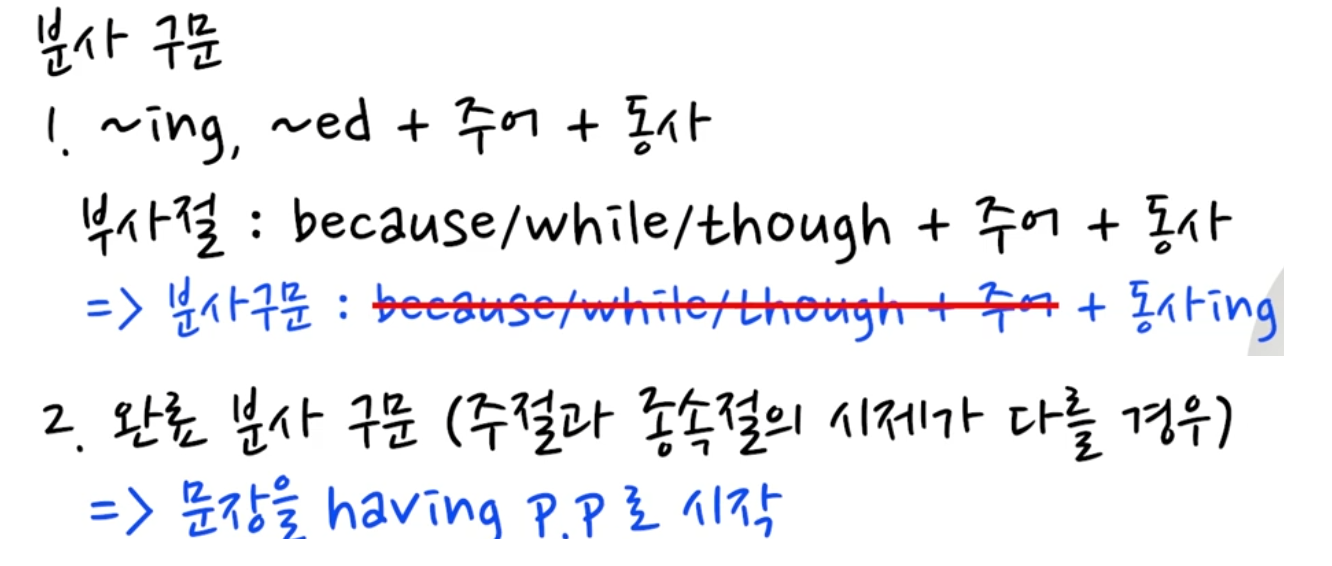 분사 구문
1. ~ing, ~ed + 주어 + 동사
부사절 : because/while/though + 주어 + 동사
=> 분사구문 : because/while/though + 주어 + 동사ing
2. 완료 분사 구문 (주절과 종속절의 시제가 다를 경우)
=> 문장을 having p.p로 시작